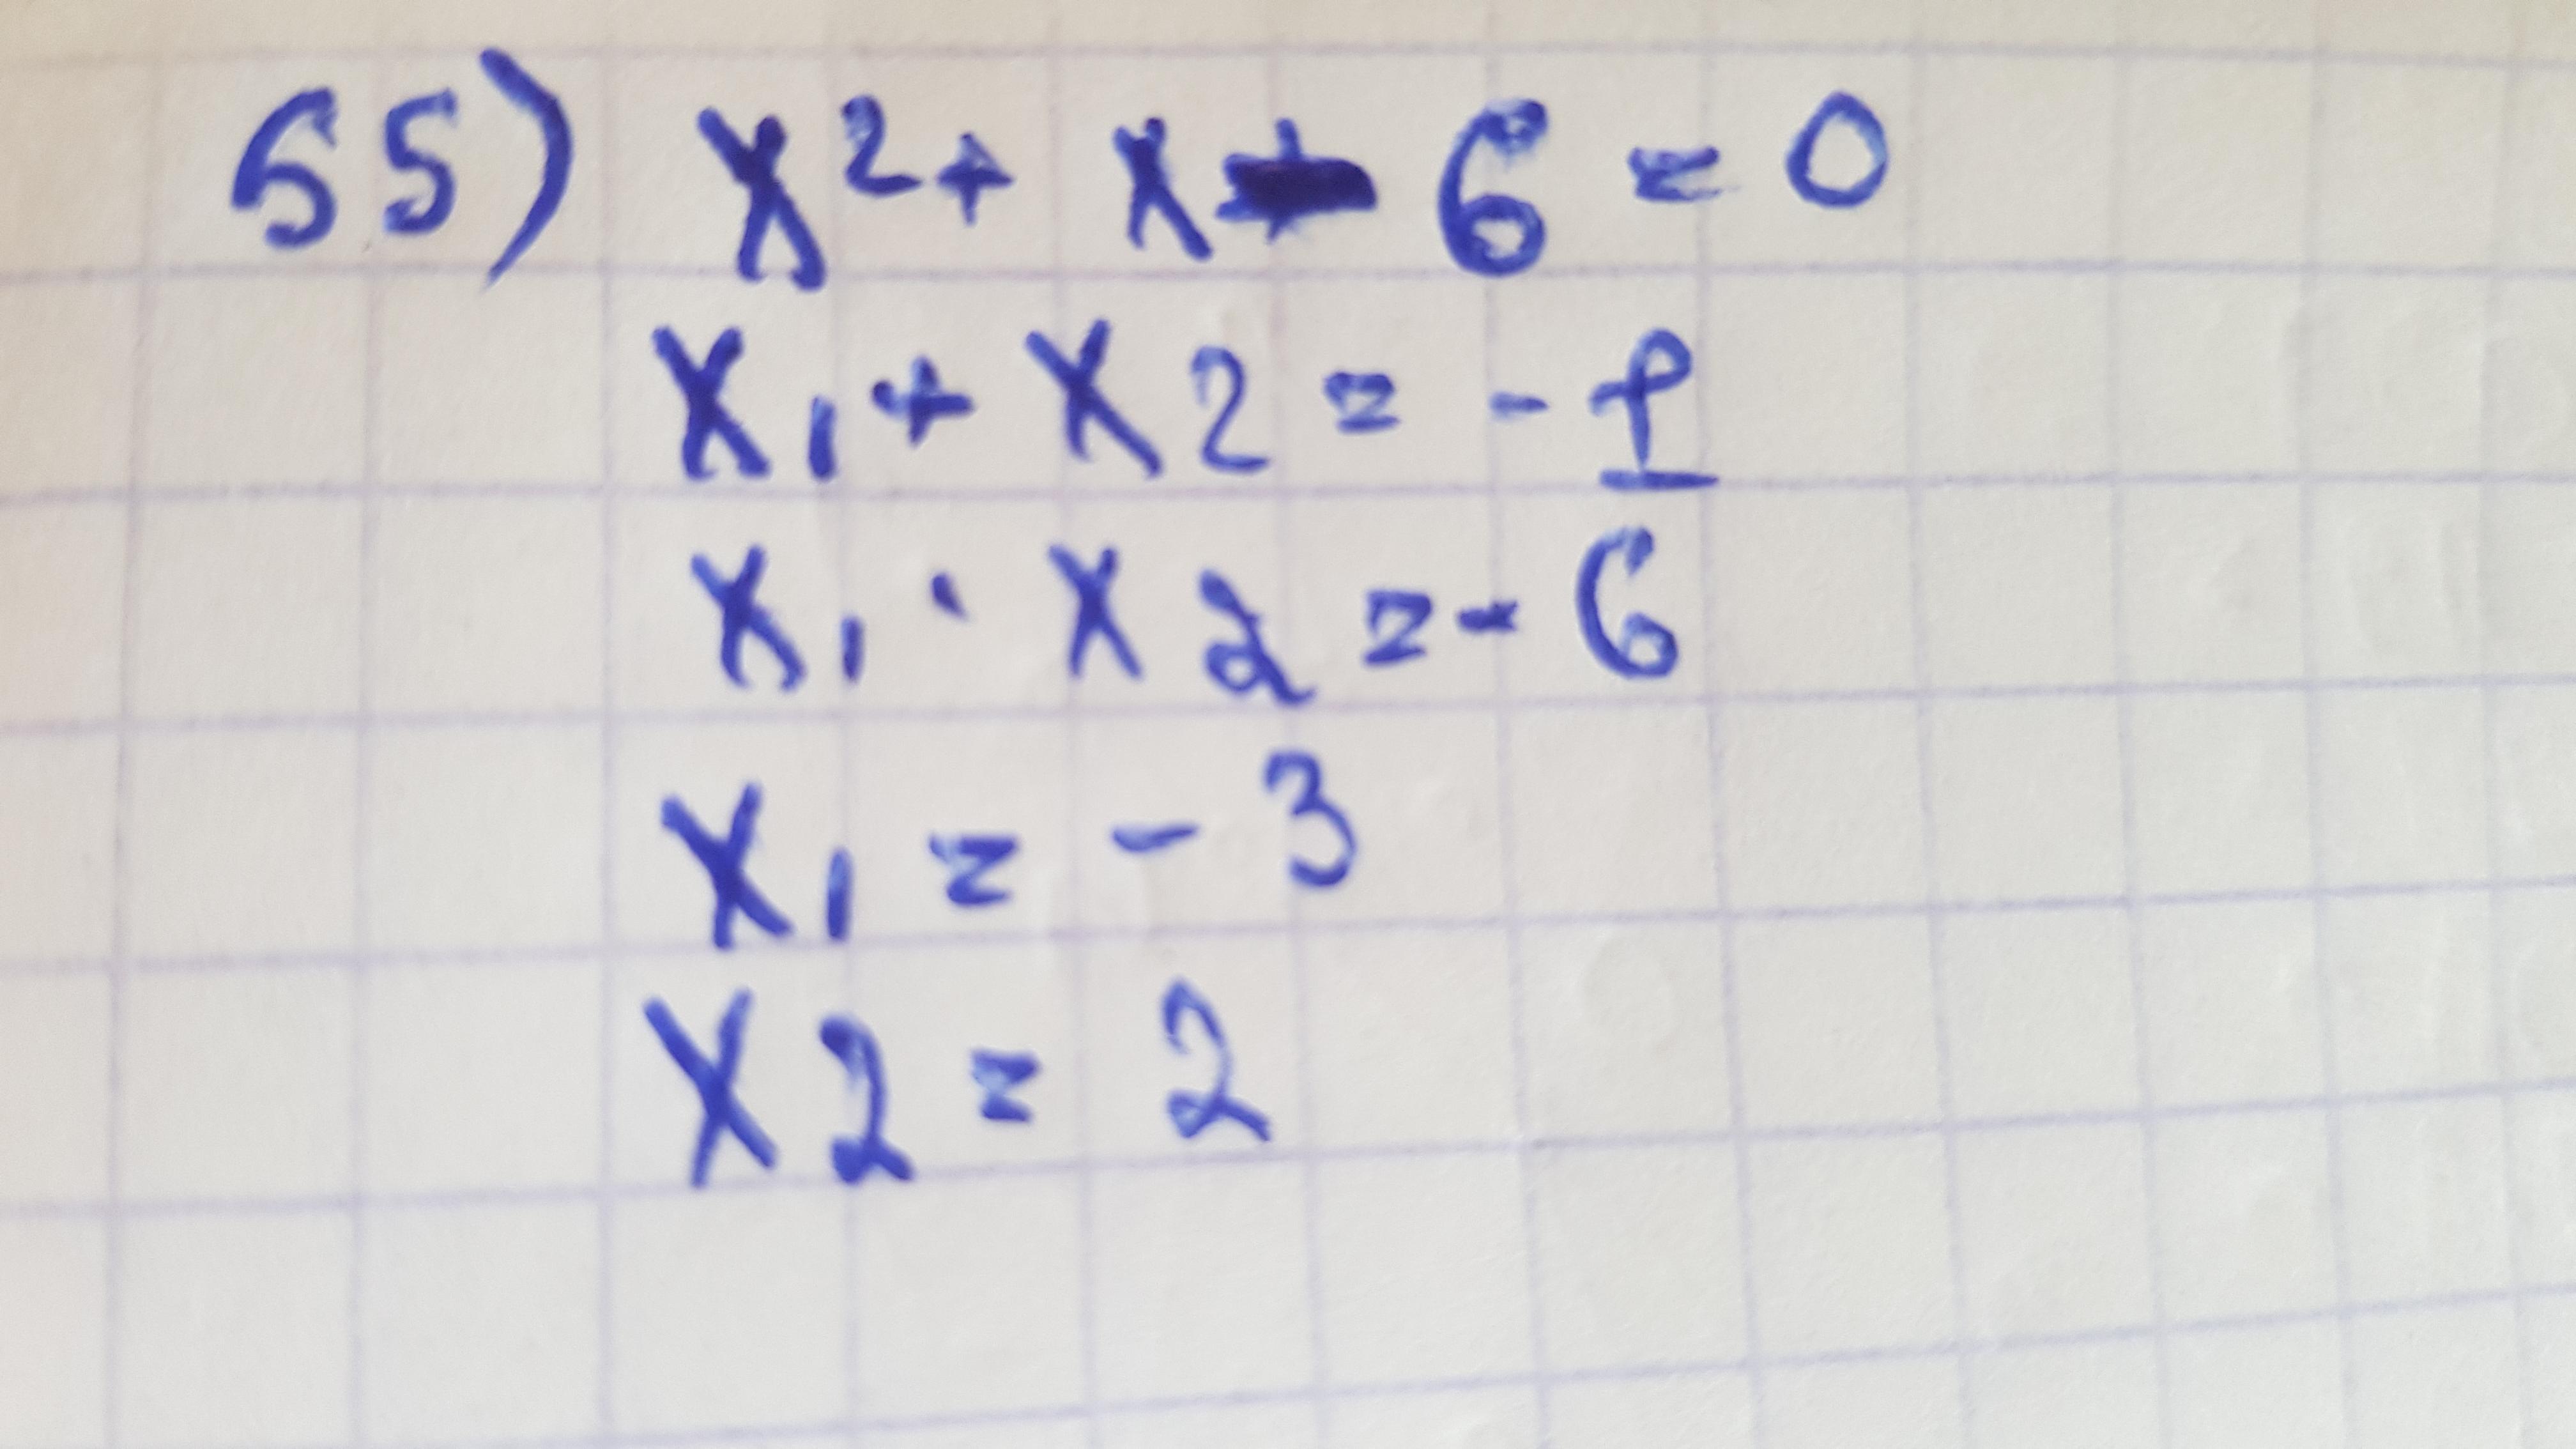 55) x² + x - 6 = 0
x₁ + x₂ = - 1
x₁ · x₂ = - 6
x₁ = - 3
x₂ = 2